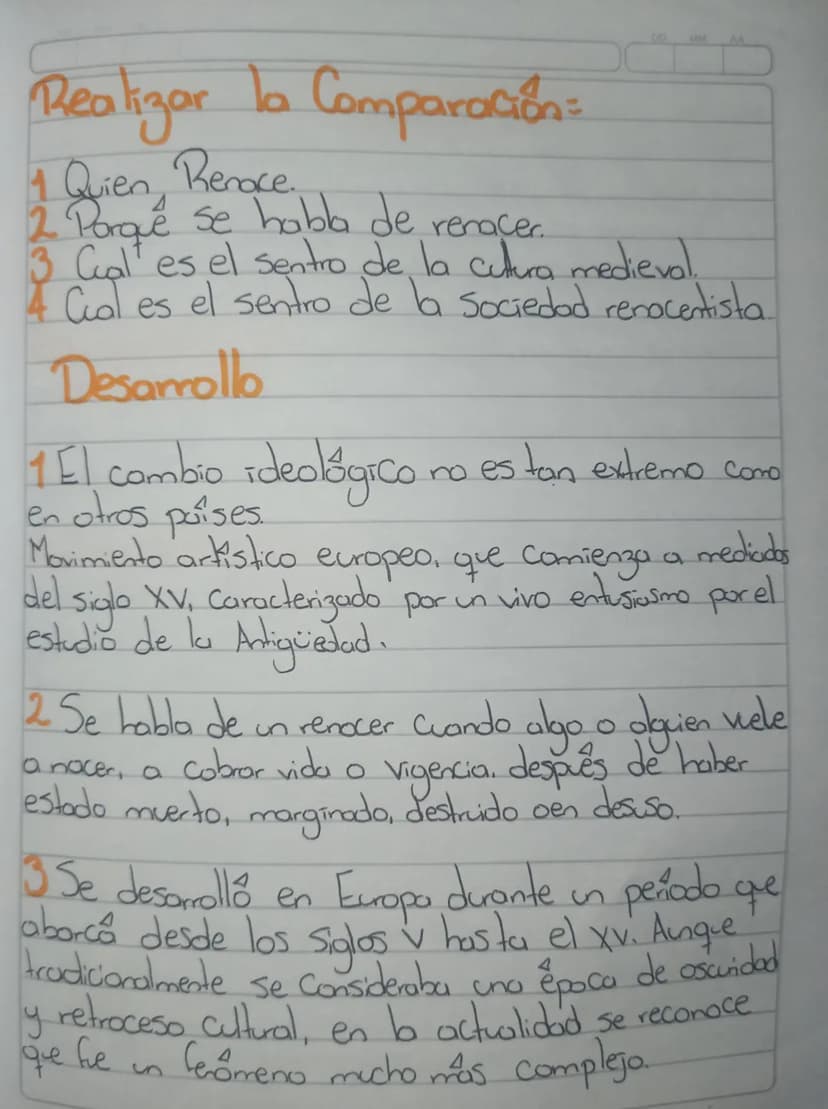 Realizar la Comparación:
1 Quien Renace.
2 Porqué se habla de renacer.
3 Cual es el sentro de la cultura medieval.
4 Cual es el sentro de la Sociedad renacentista.
Desarrollo
1 El cambio ideológico no es tan extremo como
en otros países.
Movimiento artístico europeo, que comienza a mediados
del siglo XV, Caracterizado por un vivo entusiasmo por el
estudio de la Antigüedad.
2 Se habla de un renacer Cuando algo o alguien vuele
a nacer, a cobrar vida o vigencia, después de haber
estado muerto, marginado, destruido o en desuso.
3 Se desarrolló en Europa durante un período que
aborcá desde los siglos V hasta el XV. Aunque
tradicionalmente se Consideraba una época de oscuridad
y retroceso cultural, en la actualidad se reconoce
que fue un fenómeno mucho más complejo.